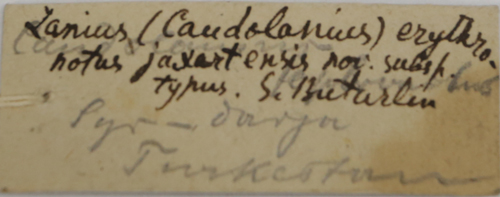 Lanius (Caudolanius) erythro-
notus jaxartensis nov. subsp.
typus. S. Buturlin
Syr-darja
Turkestan